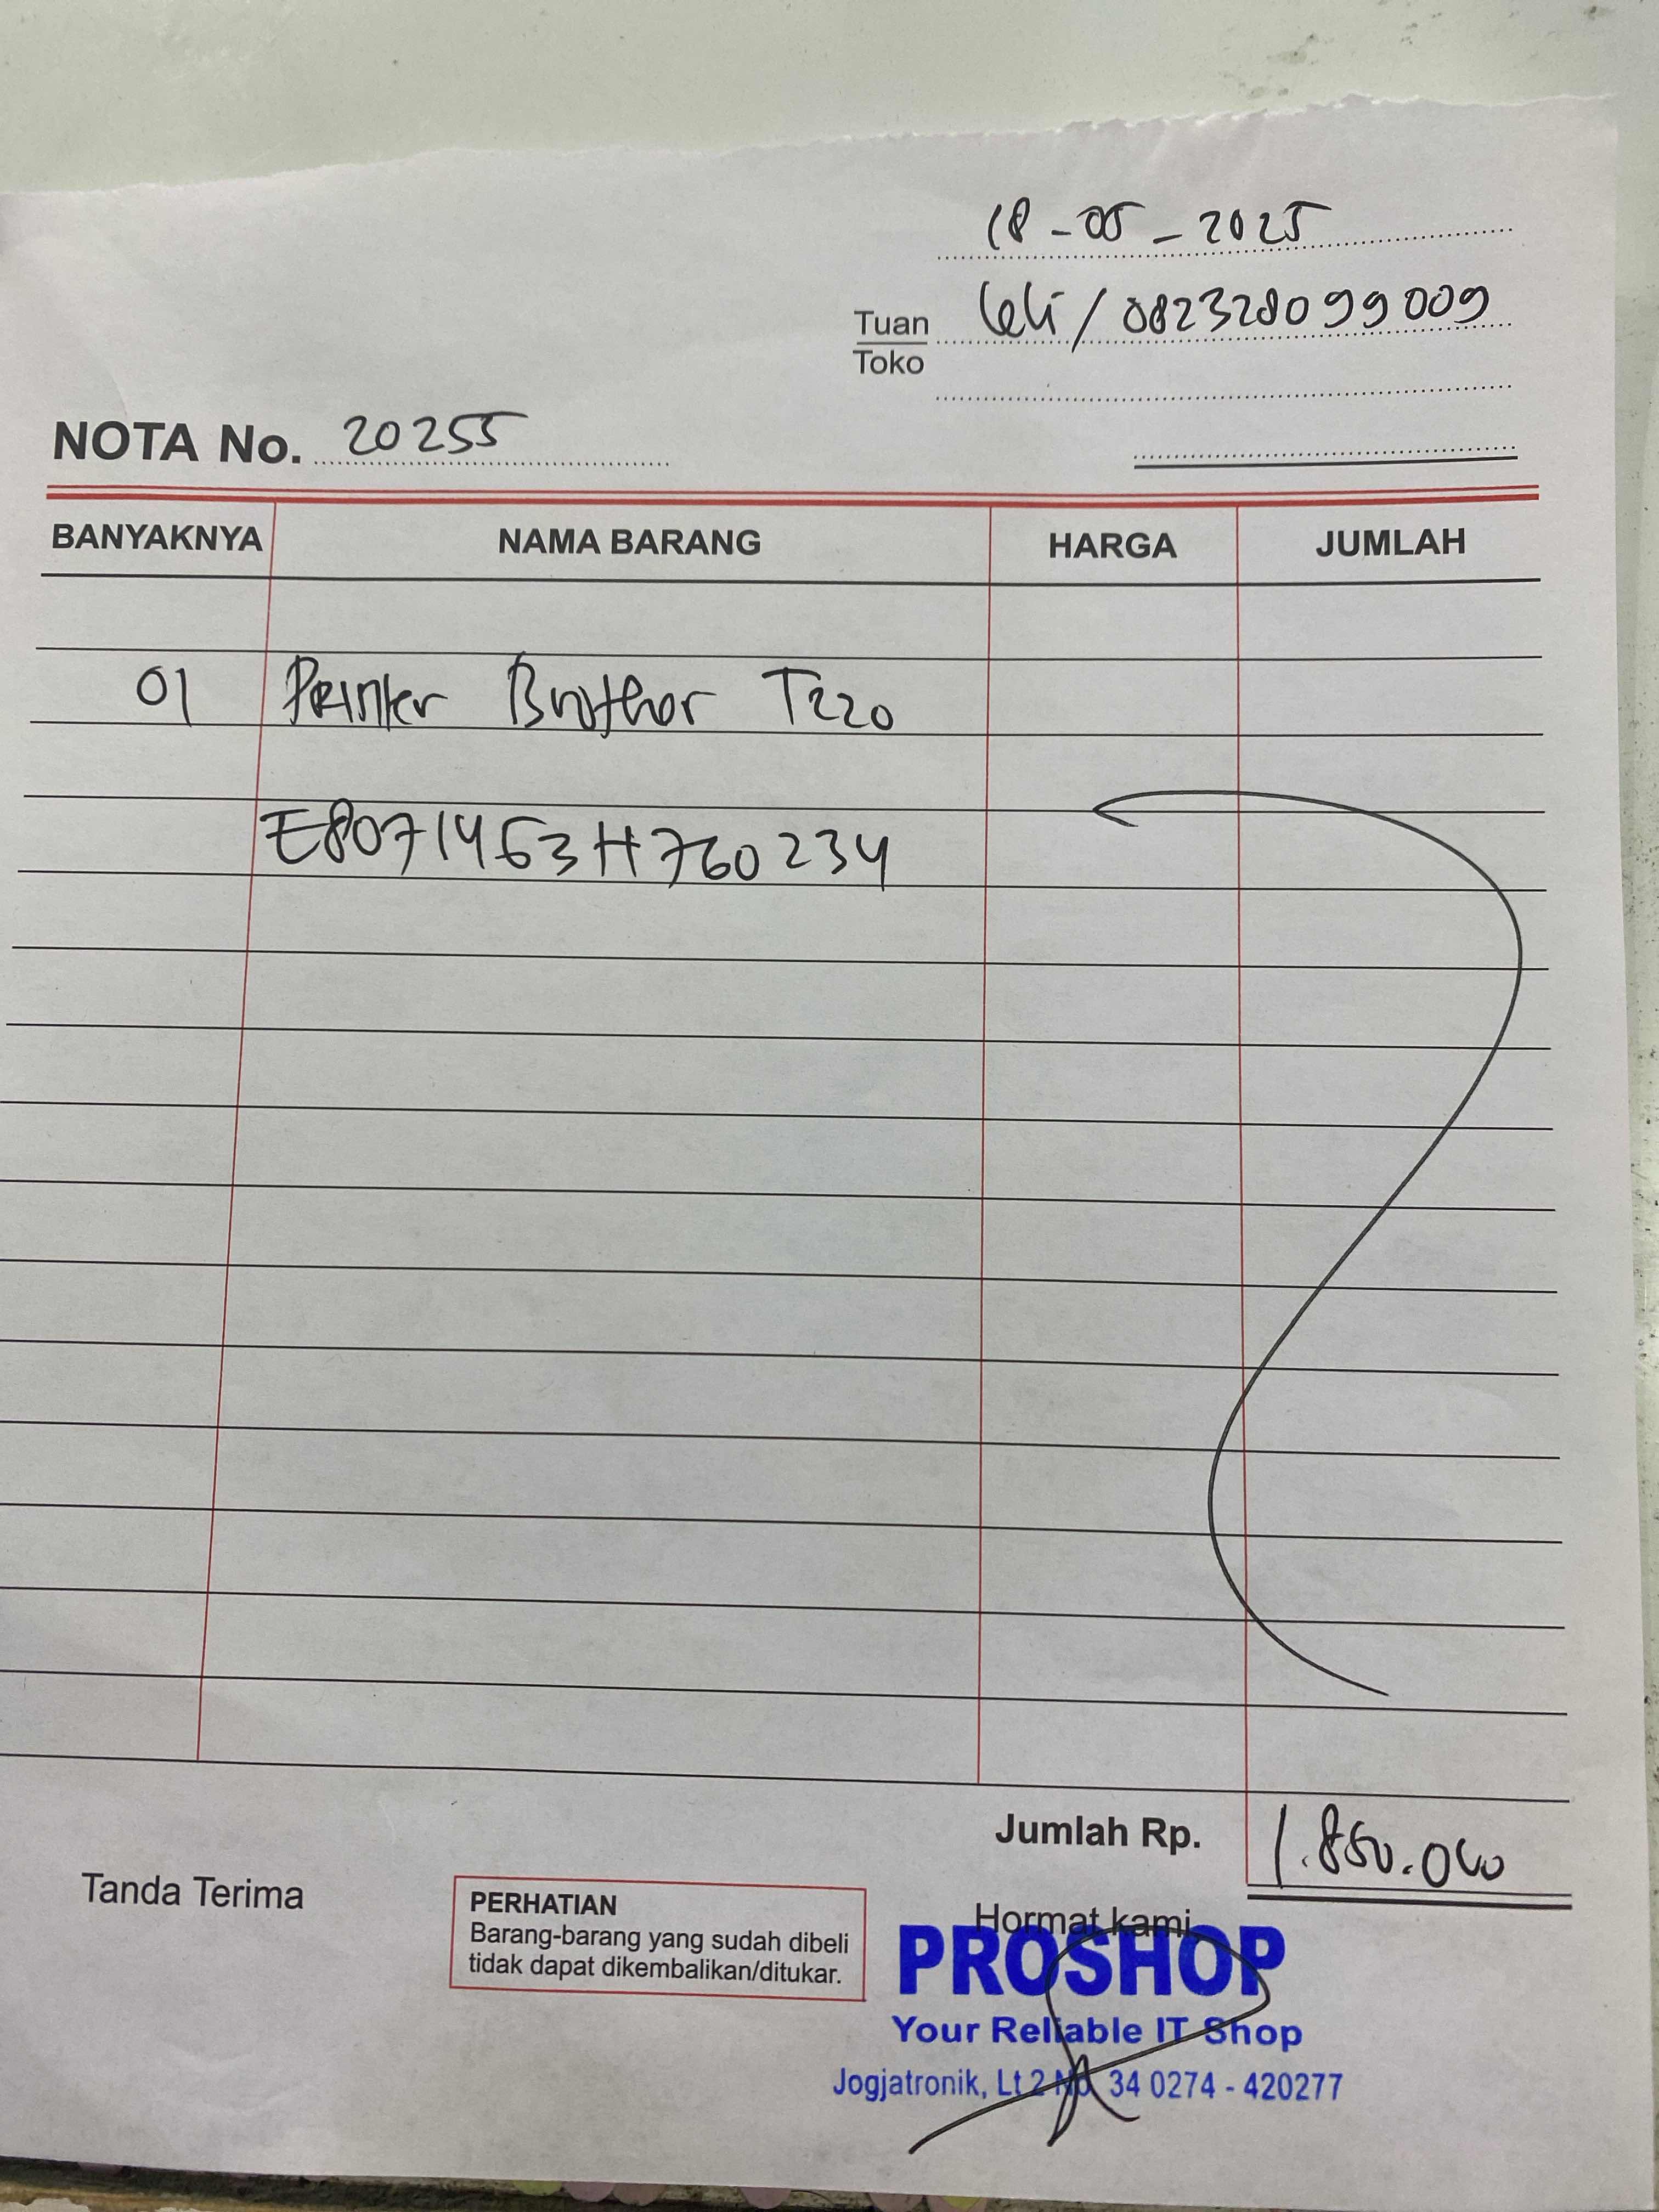 18-05-2025
Tuan Leli / 082328099009
Toko
NOTA No. 20255
BANYAKNYA NAMA BARANG HARGA JUMLAH
01 Printer Brother T220
E80714G3H760234
Jumlah Rp. 1.850.000
Tanda Terima
PERHATIAN
Barang-barang yang sudah dibeli
tidak dapat dikembalikan/ditukar.
Hormat kami,
PROSHOP
Your Reliable IT Shop
Jogjatronik, Lt 2 No. 34 0274 - 420277